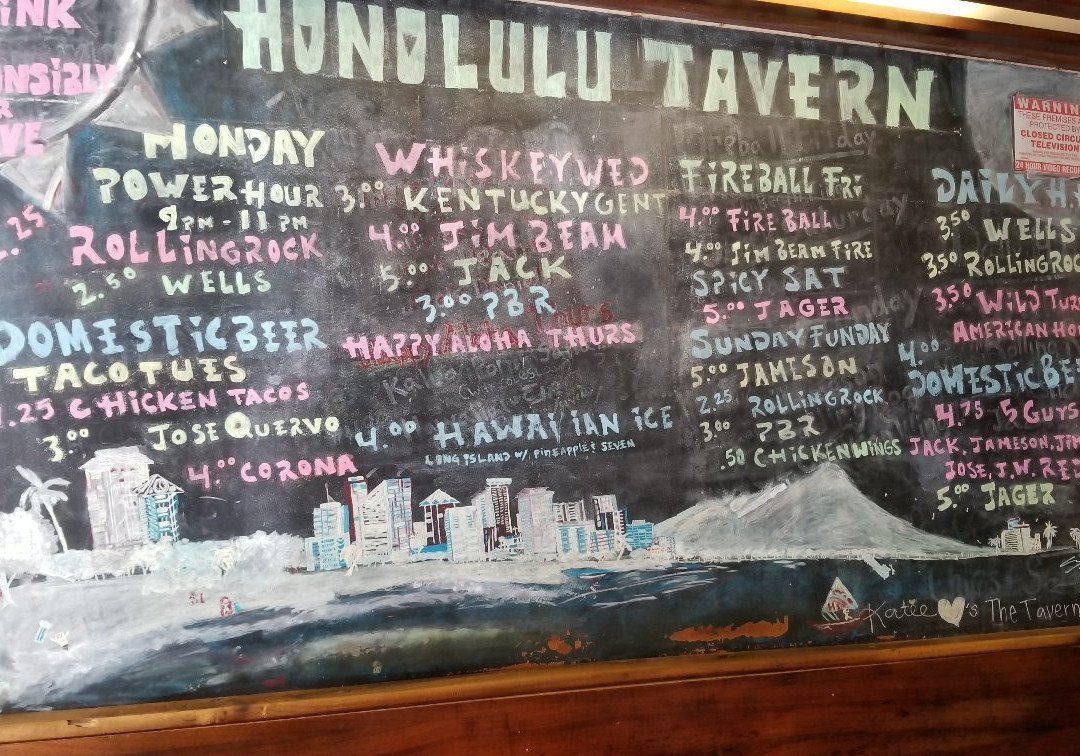 HONOLULU TAVERN
MONDAY
POWER HOUR
9PM - 11PM
ROLLINGROCK
2.50 WELLS
DOMESTIC BEER
TACO TUES
CHICKEN TACOS
3.00 JOSE QUERVO
4.00 CORONA
WHISKEY WED
3.00 KENTUCKY GENT
4.00 JIM BEAM
5.00 JACK
3.00 PBR
HAPPY ALOHA THURS
4.00 HAWAIIAN ICE
LONG ISLAND W/ PINEAPPLE & SEVEN
FIREBALL FRI
4.00 FIRE BALL
4.00 JIM BEAM FIRE
SPICY SAT
5.00 JAGER
SUNDAY FUNDAY
5.00 JAMESON
2.25 ROLLINGROCK
3.00 PBR
.50 CHICKEN WINGS
DAILY
3.50 WELLS
3.50 ROLLINGROC
3.50 WILD TUR
AMERICAN HO
4.00
DOMESTIC BEE
4.75 5 GUYS
JACK, JAMESON, JIM
JOSE, J.W. RED
5.00 JAGER
WARNING
THESE PREMISES A
PROTECTED BY
CLOSED CIRCU
TELEVISION
24 HOUR VIDEO RECOR
Katie ♥'s The Tavern